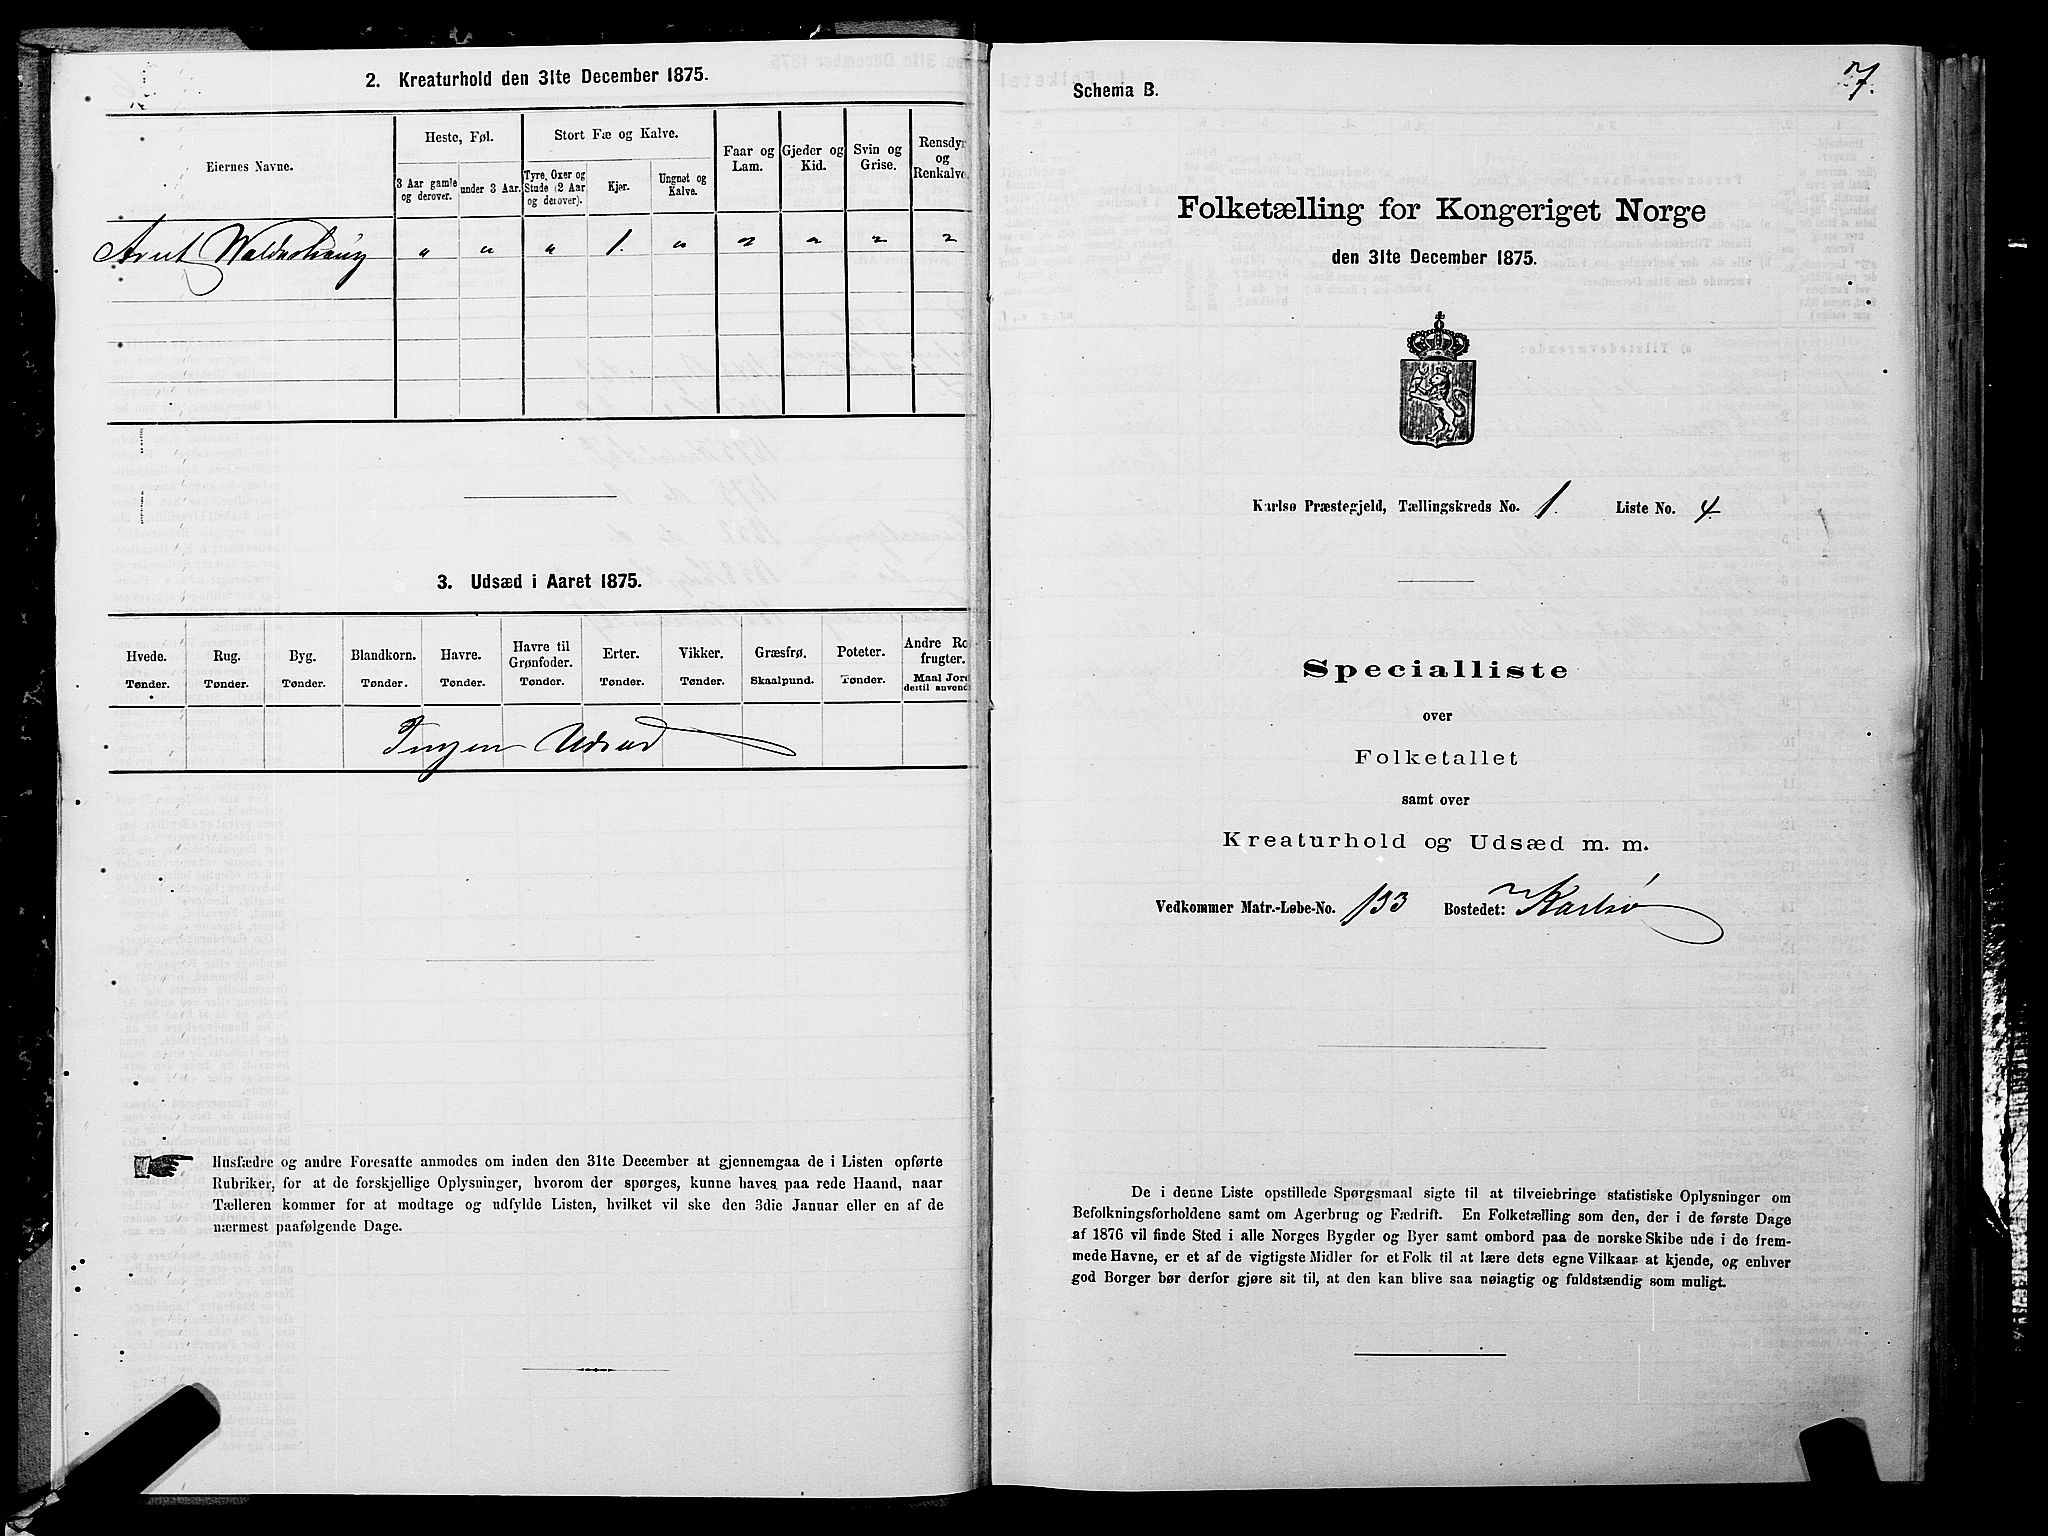 2. Kreaturhold den 31te December 1875.
Eiernes Navne.
Heste, Føl.
Stort Fæ og Kalve.
Faar og
Lam.
Gjeder og
Kid.
Svin og
Grise.
Rensdyr
og
Renkalve.
3 Aar gamle
og derover.
under 3 Aar.
Tyre, Oxer og
Stude (2 Aar
og derover).
Kjør.
Ungnøt og
Kalve.
Arnt " " " 1. " " " " "
3. Udsæd i Aaret 1875.
Hvede.
Tønder.
Rug.
Tønder.
Byg.
Tønder.
Blandkorn.
Tønder.
Havre.
Tønder.
Havre til
Grønfoder.
Tønder.
Erter.
Tønder.
Vikker.
Tønder.
Græsfrø.
Skaalpund.
Poteter.
Tønder.
Andre Ro
frugter.
Maal Jord
dertil anvend
Ingen Udsæd
Husfædre og andre Foresatte anmodes om inden den 31te December at gjennemgaa de i Listen opførte
Rubriker, for at de forskjellige Oplysninger, hvorom der spørges, kunne haves paa rede Haand, naar
Tælleren kommer for at modtage og udfylde Listen, hvilket vil ske den 3die Januar eller en af de
nærmest paafølgende Dage.
7.
Schema B.
Folketælling for Kongeriget Norge
den 31te December 1875.
Karlsø Præstegjeld, Tællingskreds No. 1. Liste No. 4.
Specialliste
over
Folketallet
samt over
Kreaturhold og Udsæd m. m.
Vedkommer Matr.-Løbe-No. 133 Bostedet: Karlsø
De i denne Liste opstillede Spørgsmaal sigte til at tilveiebringe statistiske Oplysninger om
Befolkningsforholdene samt om Agerbrug og Fædrift. En Folketælling som den, der i de første Dage
af 1876 vil finde Sted i alle Norges Bygder og Byer samt ombord paa de norske Skibe ude i de frem-
mede Havne, er et af de vigtigste Midler for et Folk til at lære dets egne Vilkaar at kjende, og enhver
god Borger bør derfor gjøre sit til, at den kan blive saa nøiagtig og fuldstændig som muligt.